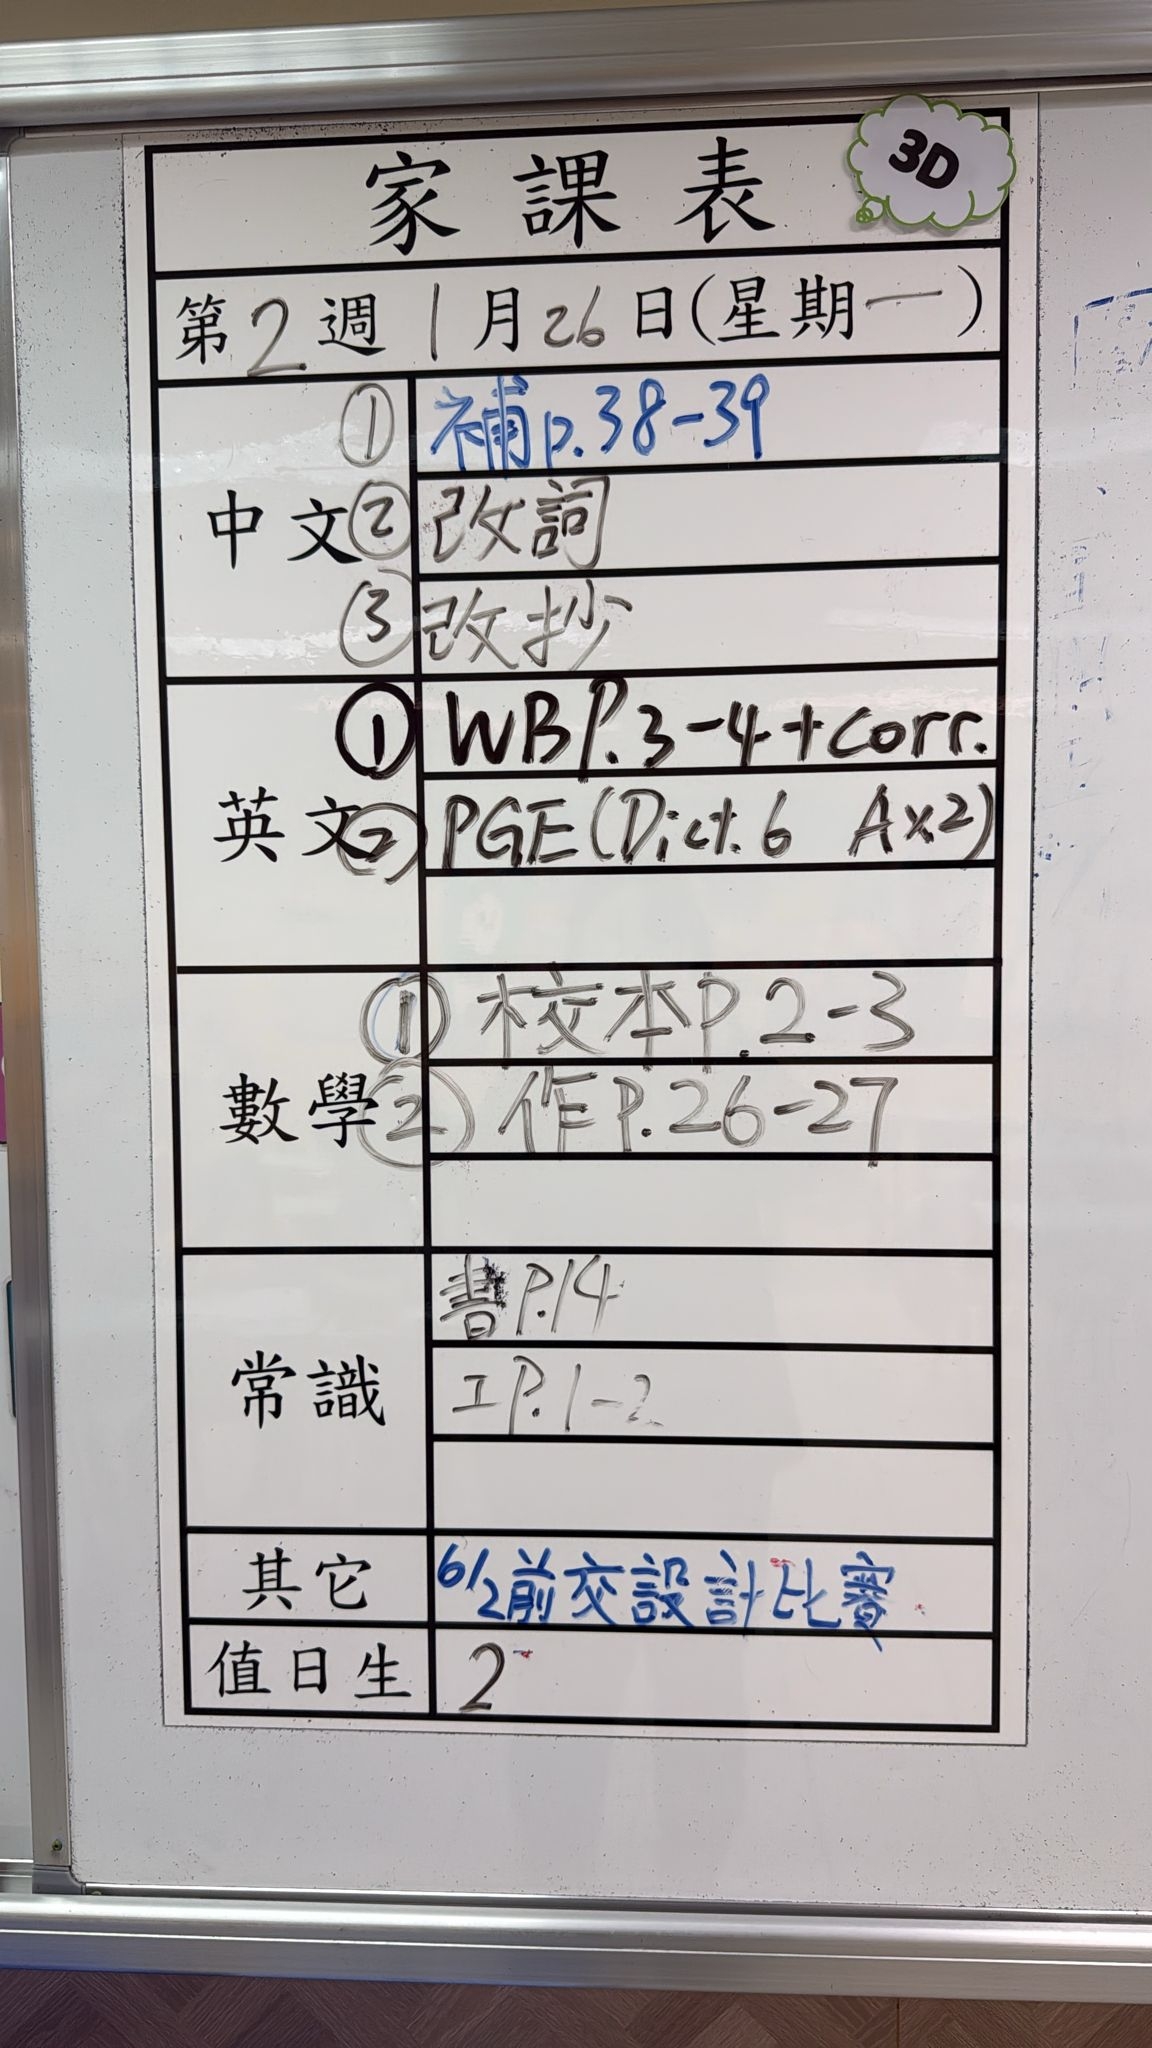 家課表
3D
第2週 1月26日(星期一)
中文
① 補p.38-39
② 改詞
③ 改抄
英文
① WB P.3-4+corr.
② PGE(Dict.6 A×2)
數學
① 校本P.2-3
② 作P.26-27
常識
書P.14
工P.1-2
其它
6/2前交設計比賽
值日生
2